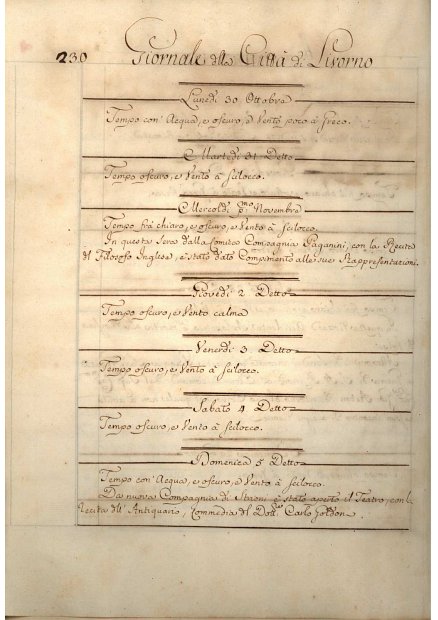 230 Giornale della Città di Livorno
Lunedì 30 Ottobre
Tempo con' Acqua, e oscuro, e Vento poco à Greco.
Martedì 31 Detto
Tempo oscuro, e Vento à Scilocco.
Mercoldì p.mo Novembre
Tempo frà chiaro, e oscuro, e Vento à Scilocco.
In questa Sera dalla Compagnia Paganini, con la Recita
del Filosofo Inglese, è stato dato Compimento alle sue Rappresentazioni.
Giovedì 2 Detto
Tempo oscuro, e Vento calma
Venerdì 3 Detto
Tempo oscuro, e Vento à Scilocco.
Sabato 4 Detto
Tempo oscuro, e Vento à Scilocco.
Domenica 5 Detto
Tempo con' Acqua, e oscuro, e Vento à Scilocco.
Da nuova Compagnia di è stato aperto il Teatro, con la
Recita dell' Antiquario, Commedia del Dott. Carlo Goldon